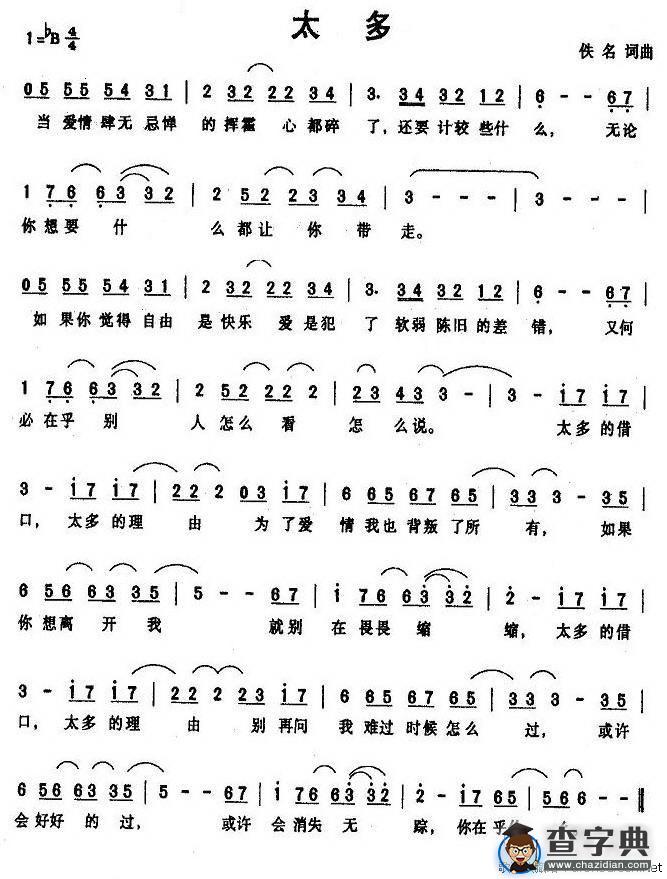 太 多
1=♭B 4/4
佚 名 词曲
05 55 54 31 | 2 32 22 34 | 3. 34 32 12 | 6 - - 67 |
当 爱情 肆无 忌惮 的 挥霍 心都碎 了,还要 计较 些什 么, 无论
1 76 63 32 | 2 52 23 34 | 3 - - - | 3 - - - |
你 想要 什 么都让 你 带 走。
05 55 54 31 | 2 32 22 34 | 3. 34 32 12 | 6 - - 67 |
如 果你 觉得 自由 是 快乐 爱 是犯 了 软弱 陈旧 的差 错, 又何
1 76 63 32 | 2 52 22 2 | 23 43 3 - | 3 - i7 i7 |
必 在乎 别 人 怎么 看 怎 么说。 太多 的借
3 - i7 i7 | 22 2 03 i7 | 6 65 67 65 | 33 3 - 35 |
口, 太多 的理 由 为 了爱 情 我也 背叛 了所 有, 如果
6 56 63 35 | 5 - - 67 | i 76 63 32 | 2 - i7 i7 |
你 想离 开 我 就别 在 畏畏 缩 缩, 太多 的借
3 - i7 i7 | 22 2 23 i7 | 6 65 67 65 | 33 3 - 35 |
口, 太多 的理 由 别 再问 我 难过 时候 怎么 过, 或许
6 56 63 35 | 5 - - 67 | i 76 63 32 | 2 - i7 i5 | 566 - - ‖
会 好好 的 过, 或许 会 消失 无 踪, 你在 乎
查字典
www.chazidian.com